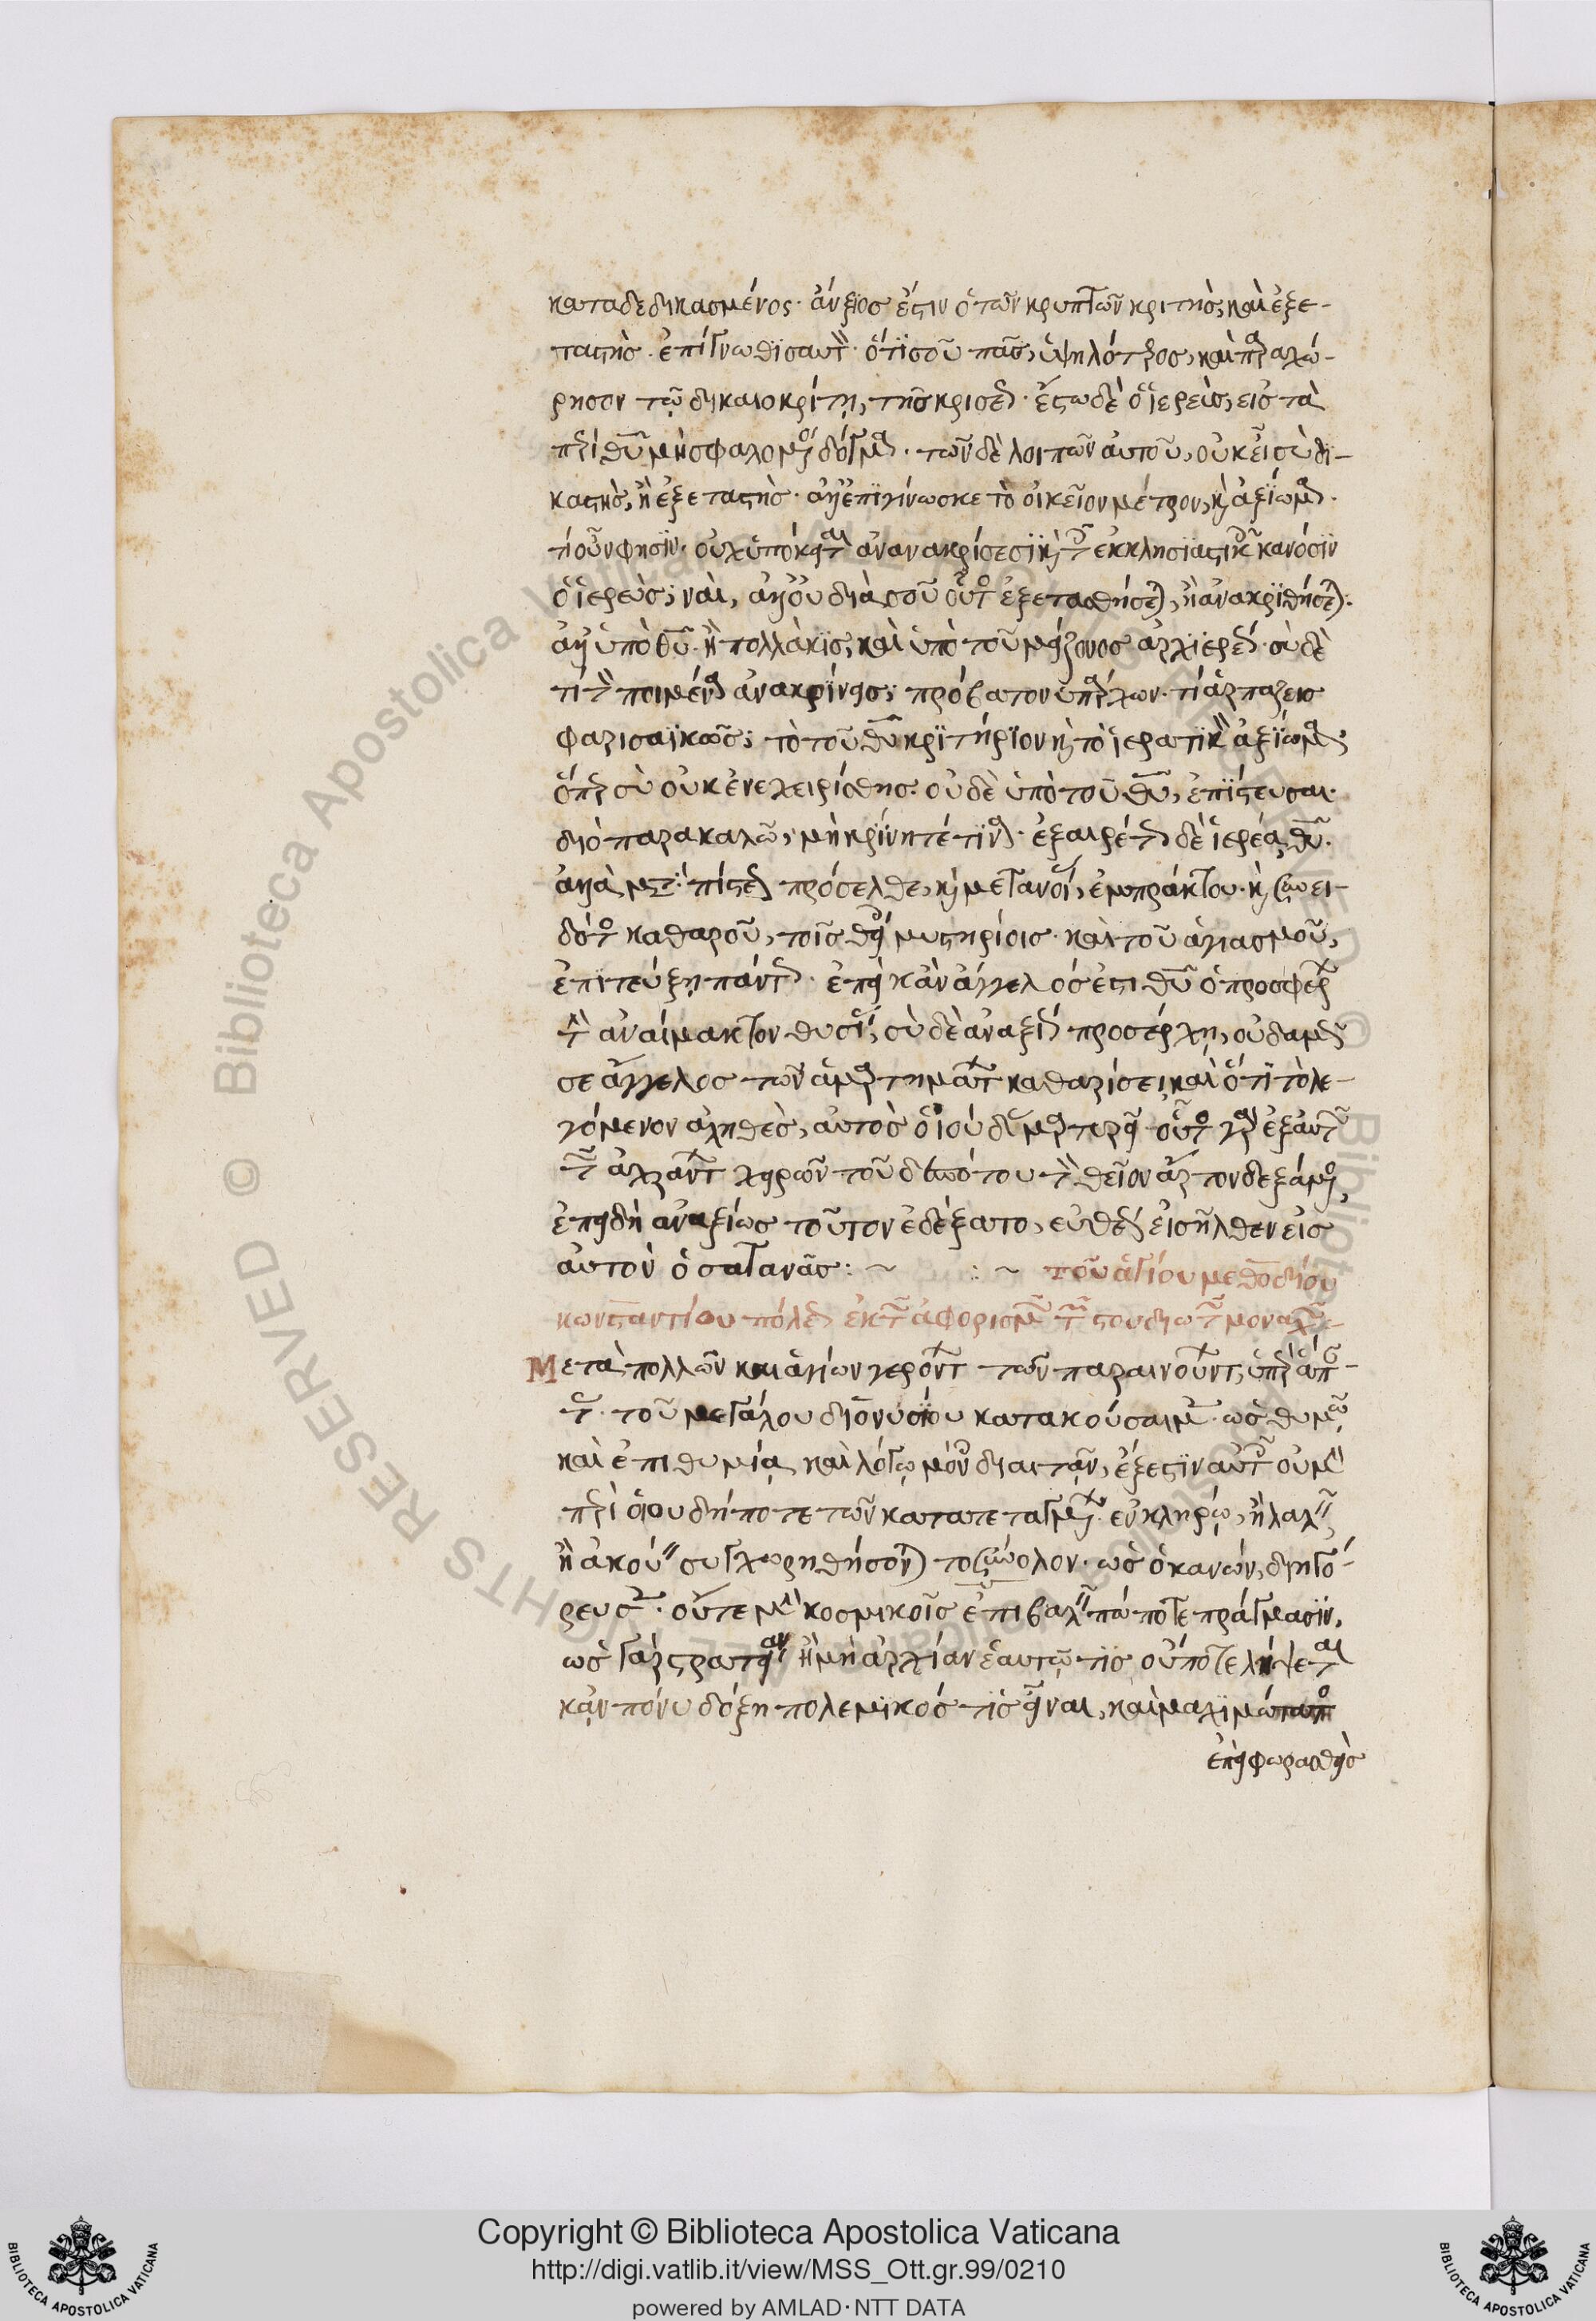 καταδεδικασμένος· ἄνξιος ἐστιν ὁ τῶν κρυπτῶν κριτὴς, καὶ ἐξε-
ταστὴς· ἐπίγνωθι σαυτὸν· ὅτι σοῦ πᾶς, ὑψηλότερος, καὶ παραχώ-
ρησον τῷ δικαιοκρίτῃ, τῆς κρισεως· ἔστω δὲ ὁ ἱερεὺς, εἰς τὰ
περὶ θῦ μὴ σφαλομένος δόγματα· τῶν δὲ λοιπῶν αὐτοῦ, οὐκ εἶ σὺ δι-
καστὴς, ἢ ἐξεταστὴς· ἀλλ' ἐπιγίνωσκε τὸ οἰκεῖον μέτρον, καὶ ἀξίωμα·
τί οὖν φησίν· οὐχ ὑπόκειται ἀνανακρίσεσι καὶ τοῖς ἐκκλησιαστικοῖς κανόσιν
ὁ ἱερεὺς; ναὶ, ἀλλ' οὐ διὰ σοῦ οὗτος ἐξετασθήσεται, ἢ ἀνακριθήσεται·
ἀλλ' ὑπὸ θῦ· ἢ πολλάκις, καὶ ὑπὸ τοῦ μείζονος ἀρχιερέως· σὺ δὲ
τί τὸν ποιμένα ἀνακρίνεις; πρόβατον ὑπάρχων· τί ἁρπάζεις
φαρισαϊκῶς; τὸ τοῦ θῦ κριτήριον καὶ τὸ ἱερατικὸν ἀξίωμα,
ὅπερ σὺ οὐκ ἐνεχειρίσθης· οὐδὲ ὑπὸ τοῦ θῦ, ἐπίστευσαι·
διὸ παρακαλῶ, μὴ κρίνητέ τινα· ἐξαιρέτως δὲ ἱερέας θῦ·
ἀλλὰ μετὰ πίστεως πρόσελθε, καὶ μετανοίας ἐμπράκτου· καὶ συνει-
δότος καθαροῦ, τοῖς θείοις μυστηρίοις· καὶ τοῦ ἁγιασμοῦ,
ἐπιτεύξῃ πάντως· ἐπεὶ κἂν ἄγγελός ἐστι θῦ ὁ προσφέρων
τὴν ἀναίμακτον θυσίαν, σὺ δὲ ἀναξίως προσέρχῃ, οὐδαμῶς
σε ἄγγελος τῶν ἁμαρτημάτων καθαρίσει, καὶ ὅτι τὸ λε-
γόμενον ἀληθὲς, αὐτὸς ὁ ἰούδας μαρτυρεῖ· οὗτος γὰρ ἐξ αὐτῶν
τῶν ἀχράντων χειρῶν τοῦ δεσπότου τὸν θεῖον ἄρτον δεξάμενος,
ἐπειδὴ ἀναξίως τοῦτον ἐδέξατο, εὐθέως εἰσῆλθεν εἰς
αὐτὸν ὁ σατανᾶς: ~ : ~ τοῦ ἁγίου μεθοδίου
κωνσταντίου πόλεως ἐκ τῶν ἀφορισμῶν τῶν στουδιωτῶν μοναχῶν-
Μετὰ πολλῶν καὶ ἁγίων γερόντων τῶν παραινούντων, ὑπὲρ ἅπαν-
τας· τοῦ μεγάλου διονυσίου κατακούσωμεν· ὡς θυμῷ
καὶ ἐπιθυμίᾳ καὶ λόγῳ μόνον διαιτᾶν, ἔξεστιν αὐτοῖς οὐ μὴν
περὶ οἱουδήποτε τῶν κατατεταγμένων ἐν κλήρῳ, ἢ λαλεῖν,
ἢ ἀκούειν συγχωρηθήσονται τὸ σύνολον· ὡς ὁ κανών, διηγό-
ρευσεν· οὔτε μὴν κοσμικοῖς ἐπιβαλεῖν πώποτε πράγμασιν,
ὡς γὰρ στρατείαν ἢ μὴν ἀρχίαν ἑαυτῷ τις οὔποτε λήψεται
κἂν πάνυ δόξῃ πολεμικός τις εἶναι, καὶ μαχιμώτατος
ἐπεὶ φωραθεὶς
Copyright © Biblioteca Apostolica Vaticana
http://digi.vatlib.it/view/MSS_Ott.gr.99/0210
powered by AMLAD·NTT DATA